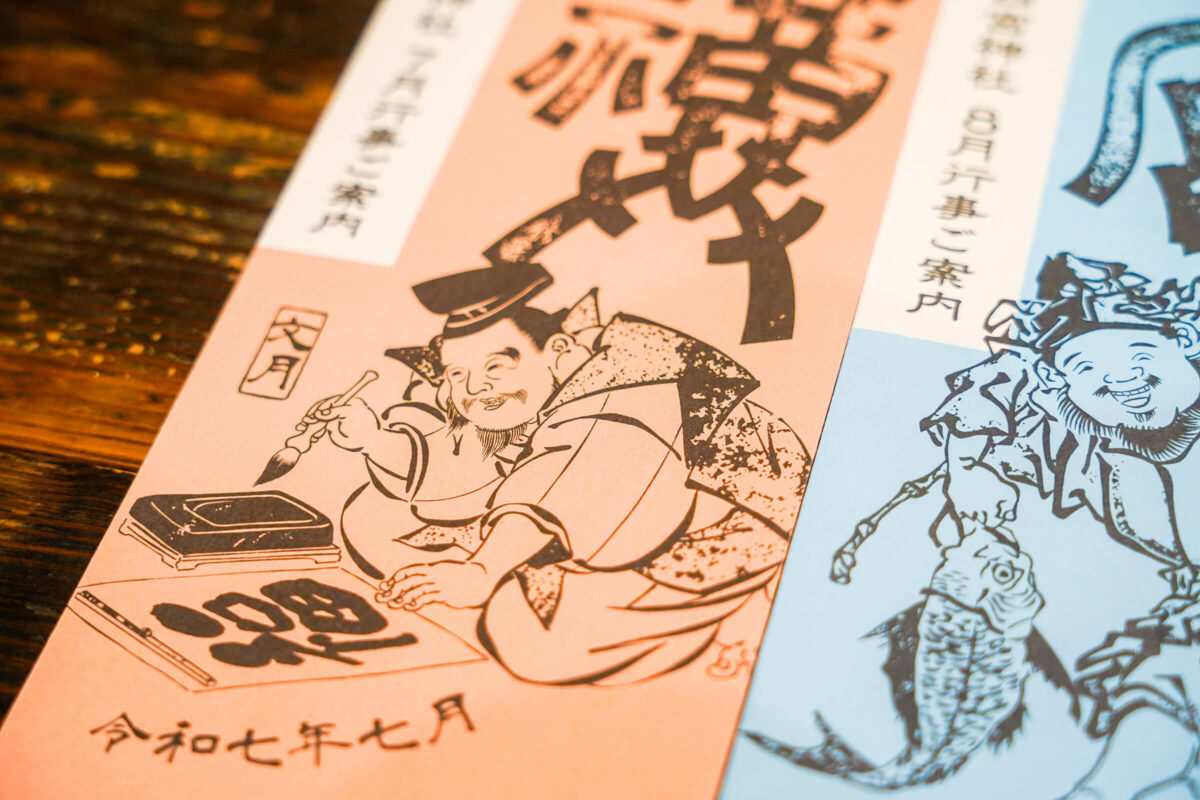 神社 7月行事ご案内
文月
福
令和七年七月
宮神社 8月行事ご案内